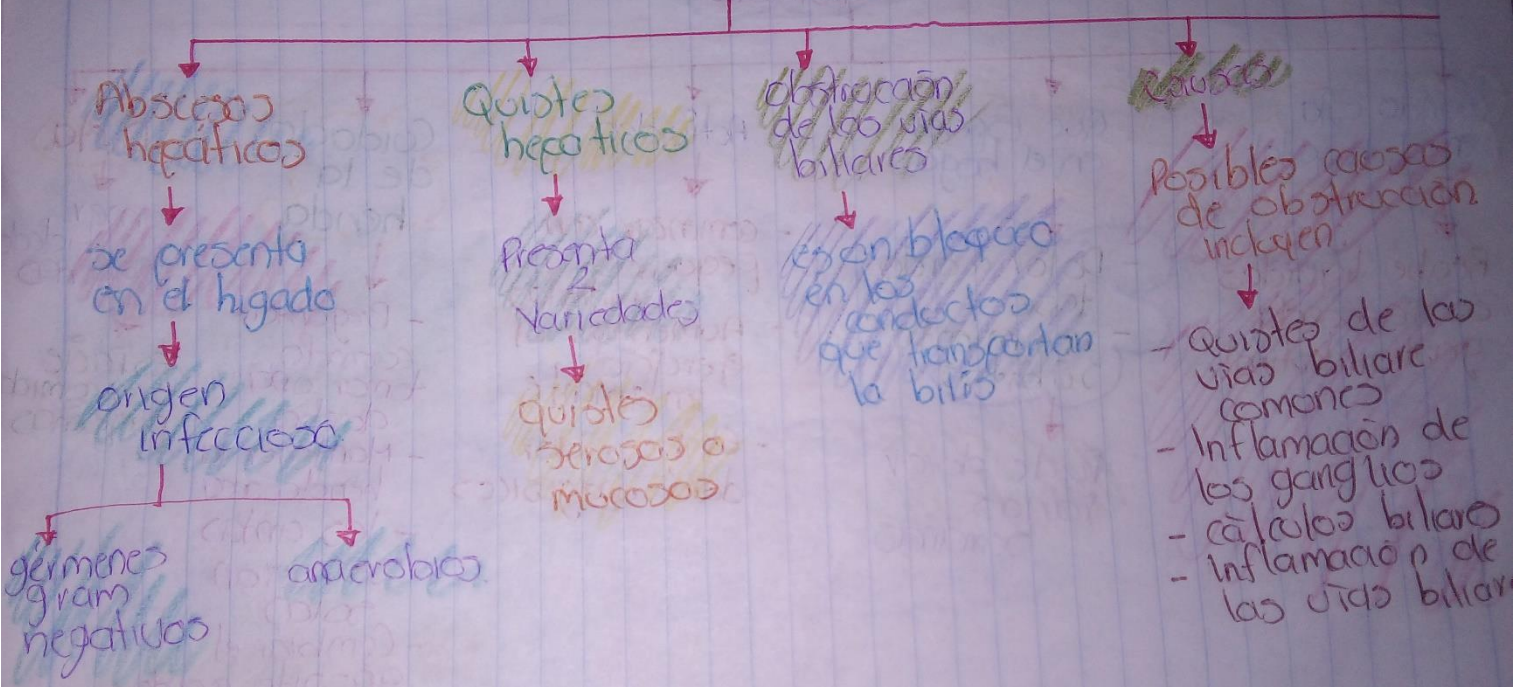 Abscesos
hepáticos
se presenta
en el higado
origen
infeccioso
gérmenes
gram
negativos
anaerobios
Quistes
hepaticos
Presenta
2
Variedades
quistes
serosas o
mucosos
obstrucción
de las vias
biliares
es un bloqueo
en los
conductos
que transportan
la bilis
Causas
Posibles causas
de obstrucción
incluyen
- Quistes de las
vias biliare
comones
- Inflamación de
los ganglios
- cálculos biliares
- inflamación de
las vias biliar